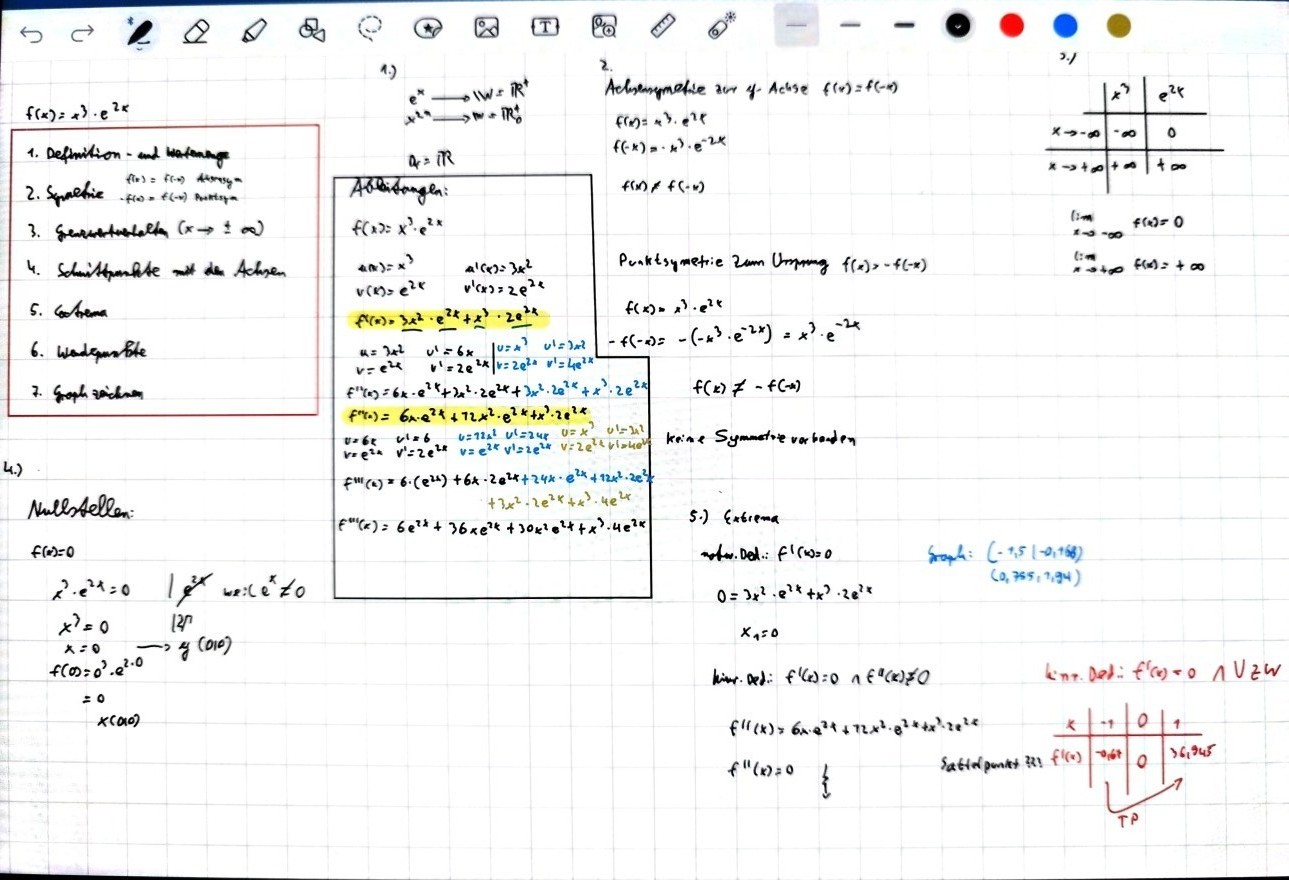 f(x) = x³ · e^2x
1. Definition - und Wertemenge
2. Symmetrie f(x) = f(-x) Achsensym
-f(x) = f(-x) Punktsym
3. Grenzwertverhalten (x → ± ∞)
4. Schnittpunkte mit den Achsen
5. Extrema
6. Wendepunkte
7. Graph zeichnen
1.)
e^x → W = ℝ⁺
x^2n → W = ℝ₀⁺
D_f = ℝ
Ableitungen:
f(x) = x³ · e^2x
u(x) = x³ u'(x) = 3x²
v(x) = e^2x v'(x) = 2e^2x
f'(x) = 3x² · e^2x + x³ · 2e^2x
u = 3x² u' = 6x | u = x³ u' = 3x²
v = e^2x v' = 2e^2x | v = 2e^2x v' = 4e^2x
f''(x) = 6x · e^2x + 3x² · 2e^2x + 3x² · 2e^2x + x³ · 2e^2x
f''(x) = 6x · e^2x + 12x² · e^2x + x³ · 2e^2x
u = 6x u' = 6 u = 12x² u' = 24x u = x³ u' = 3x²
v = e^2x v' = 2e^2x v = e^2x v' = 2e^2x v = 2e^2x v' = 4e^2x
f'''(x) = 6 · (e^2x) + 6x · 2e^2x + 24x · e^2x + 12x² · 2e^2x
+ 3x² · 2e^2x + x³ · 4e^2x
f'''(x) = 6e^2x + 36xe^2x + 30x²e^2x + x³ · 4e^2x
2.
Achsensymetrie zur y-Achse f(x) = f(-x)
f(x) = x³ · e^2x
f(-x) = -x³ · e^-2x
f(x) ≠ f(-x)
Punktsymetrie zum Ursprung f(x) = -f(-x)
f(x) = x³ · e^2x
-f(-x) = -(-x³ · e^-2x) = x³ · e^-2x
f(x) ≠ -f(-x)
keine Symmetrie vorhanden
3.)
x³ e^2x
x → -∞ -∞ 0
x → +∞ +∞ +∞
lim x → -∞ f(x) = 0
lim x → +∞ f(x) = +∞
4.)
Nullstellen:
f(x) = 0
x³ · e^2x = 0 | e^2x weil e^x ≠ 0
x³ = 0
x = 0 → y (0|0)
f(0) = 0³ · e^2·0
= 0
x (0|0)
5.) Extrema
notw. Bed.: f'(x) = 0
0 = 3x² · e^2x + x³ · 2e^2x
x₁ = 0
hinr. Bed.: f'(x) = 0 ∧ f''(x) ≠ 0
f''(x) = 6x · e^2x + 12x² · e^2x + x³ · 2e^2x
f''(x) = 0 ↯
Graph: (-1,5 | -0,168)
(0,755, 1,94)
hinr. Bed.: f'(x) = 0 ∧ VZW
x -1 0 1
Sattelpunkt ??? f'(x) 0
TP